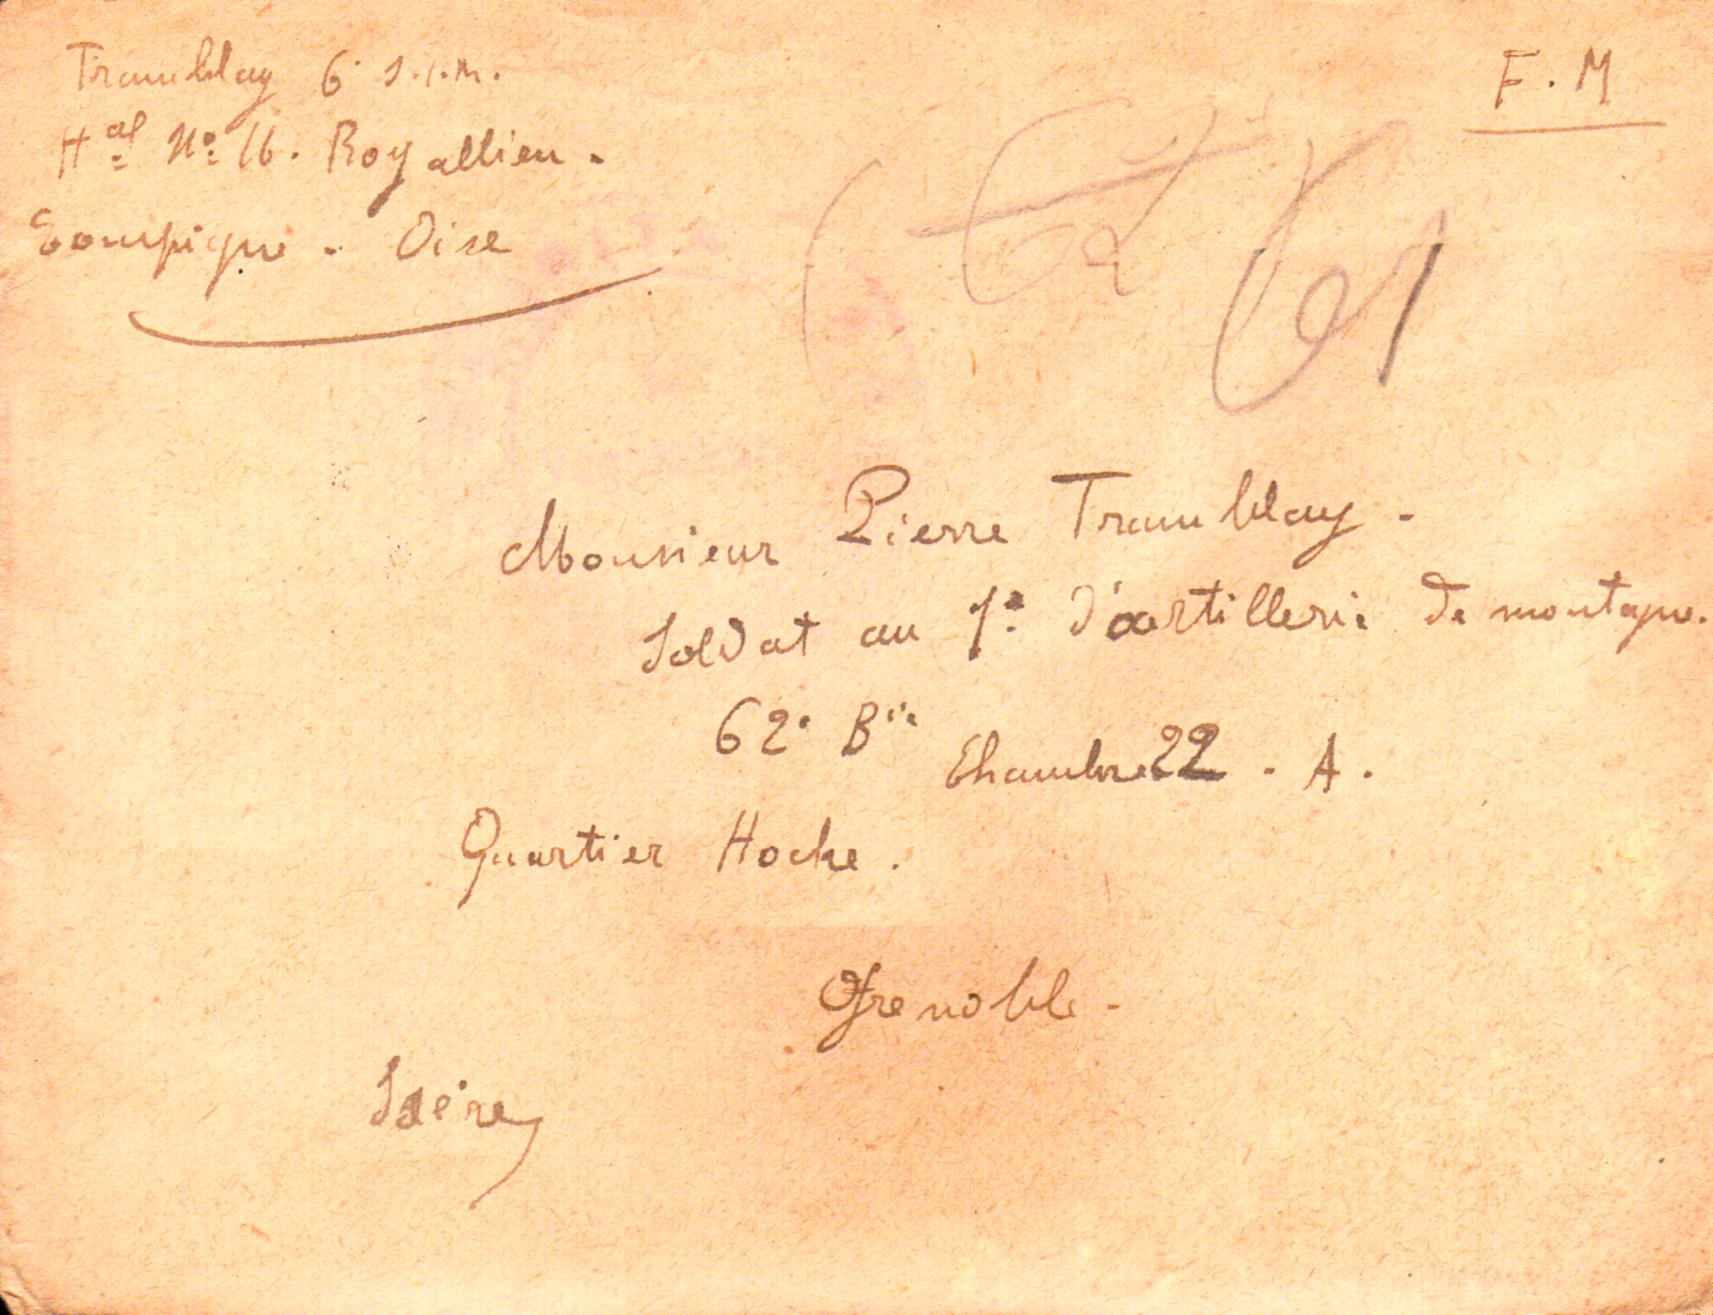 Tramblay 6e S.I.M.
Hal No 16. Royallieu.
Compiègne. Oise
F. M
Monsieur Pierre Tramblay.
Soldat au 1er d'artillerie de montagne.
62e Bie
Chambre 22. A.
Quartier Hoche.
Grenoble.
Isère